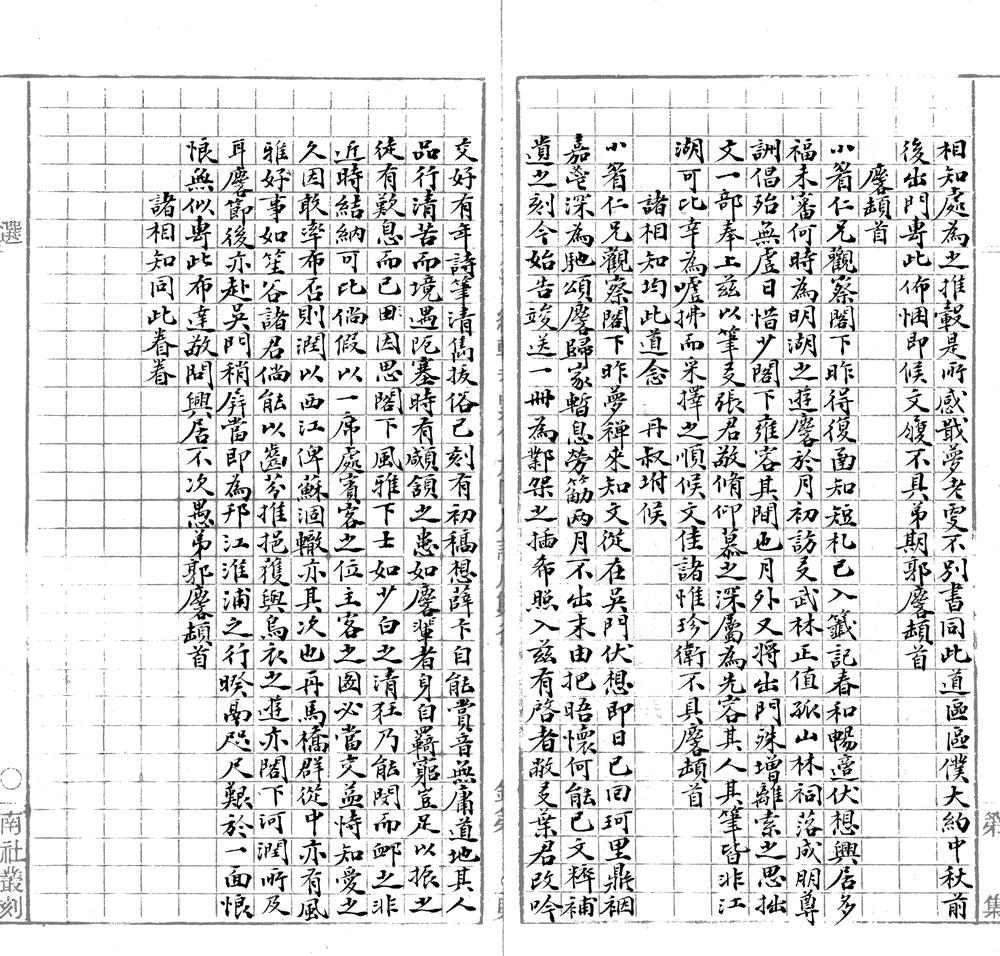 相知處為之推轂是所感戢夢老雯不別書同此道區區僕大約中秋前
後出門專此佈悃即候文馥不具弟期郭麐頓首
麐頓首
小筠仁兄觀察閣下昨得復函知短札已入籤記春和暢遥伏想興居多
福未審何時為明湖之遊麐於月初訪友武林正值孤山林祠落成朋尊
詶倡殆無虛日惜少閣下雍容其間也月外又將出門殊增離索之思拙
文一部奉上茲以筆友張君敬脩仰慕之深屬為先容其人其筆皆非江
湖可比幸為噓拂而采擇之順候文佳諸惟珍衛不具麐頓首
諸相知均此道念 丹叔坿候
小筠仁兄觀察閣下昨夢禪來知文從在吳門伏想即日已回珂里鼎裀
嘉鬯深為馳頌麐歸家暫息勞筋兩月不出末由把晤懷何能已文粹補
遺之刻今始告竣送一冊為鄴架之插希照入茲有啓者敝友葉君改吟
交好有年詩筆清雋拔俗已刻有初稿想薛卞自能賞音無庸道地其人
品行清苦而境遇阨塞時有顑頷之患如麐輩者身自羇窮豈足以振之
徒有歎息而已因思閣下風雅下士如少白之清狂乃能閔而卹之非
近時結納可比倘假以一席處賓客之位主客之圖必當交益恃知愛之
久因敢率布否則潤以西江俾蘇涸轍亦其次也再馬橋群從中亦有風
雅好事如笙谷諸君倘能以齒芬推挹獲與烏衣之遊亦閣下河潤所及
耳麐節後亦赴吳門稍屏當即為邗江淮浦之行暌曷咫尺艱於一面恨
恨無似專此布達敬問興居不次愚弟郭麐頓首
諸相知同此眷眷
選
○
南社叢刻
第 集